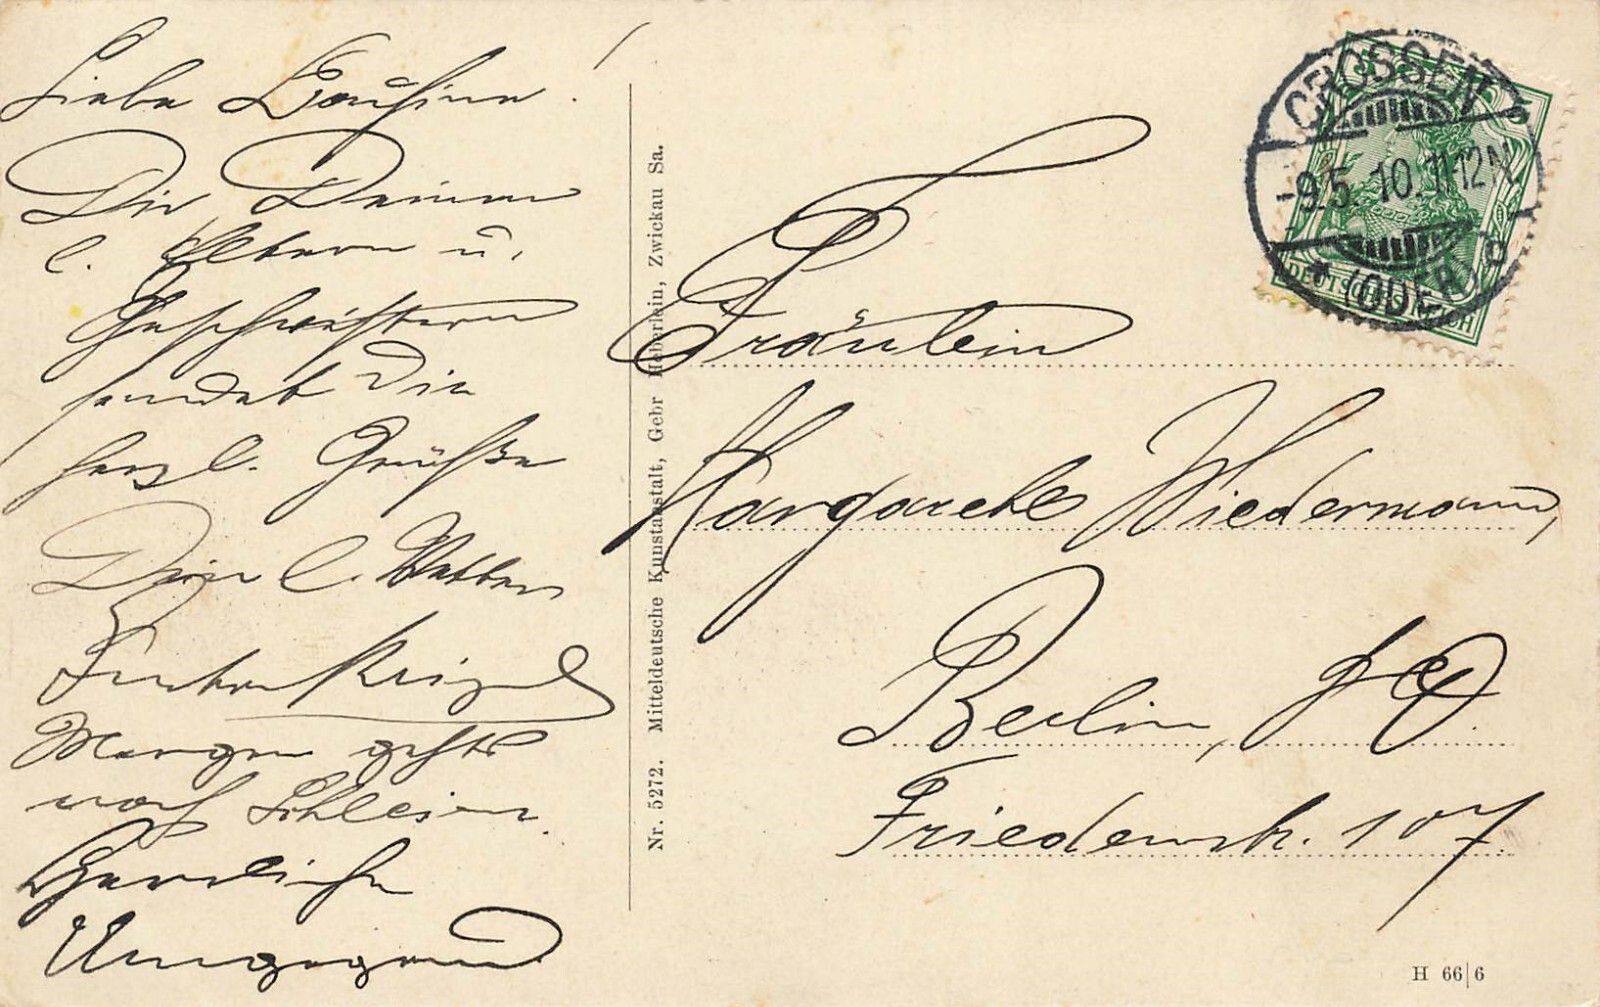 Liebe Cousine!
Dir Deinen
l. Eltern u.
Geschwistern
sendet die
herzl. Grüße
Dein l. Vetter
Morgen gehts
nach Schlesien.
Herrliche
Umgegend
Nr. 5272. Mitteldeutsche Kunstanstalt, Gebr Heberlein, Zwickau Sa.
CROSSEN
-9.5.10.11-12N
* (ODER)
DEUTSCHES REICH
5
Fräulein
Margarethe Wiedermann,
Berlin,
Friedenstr. 107
H 66|6